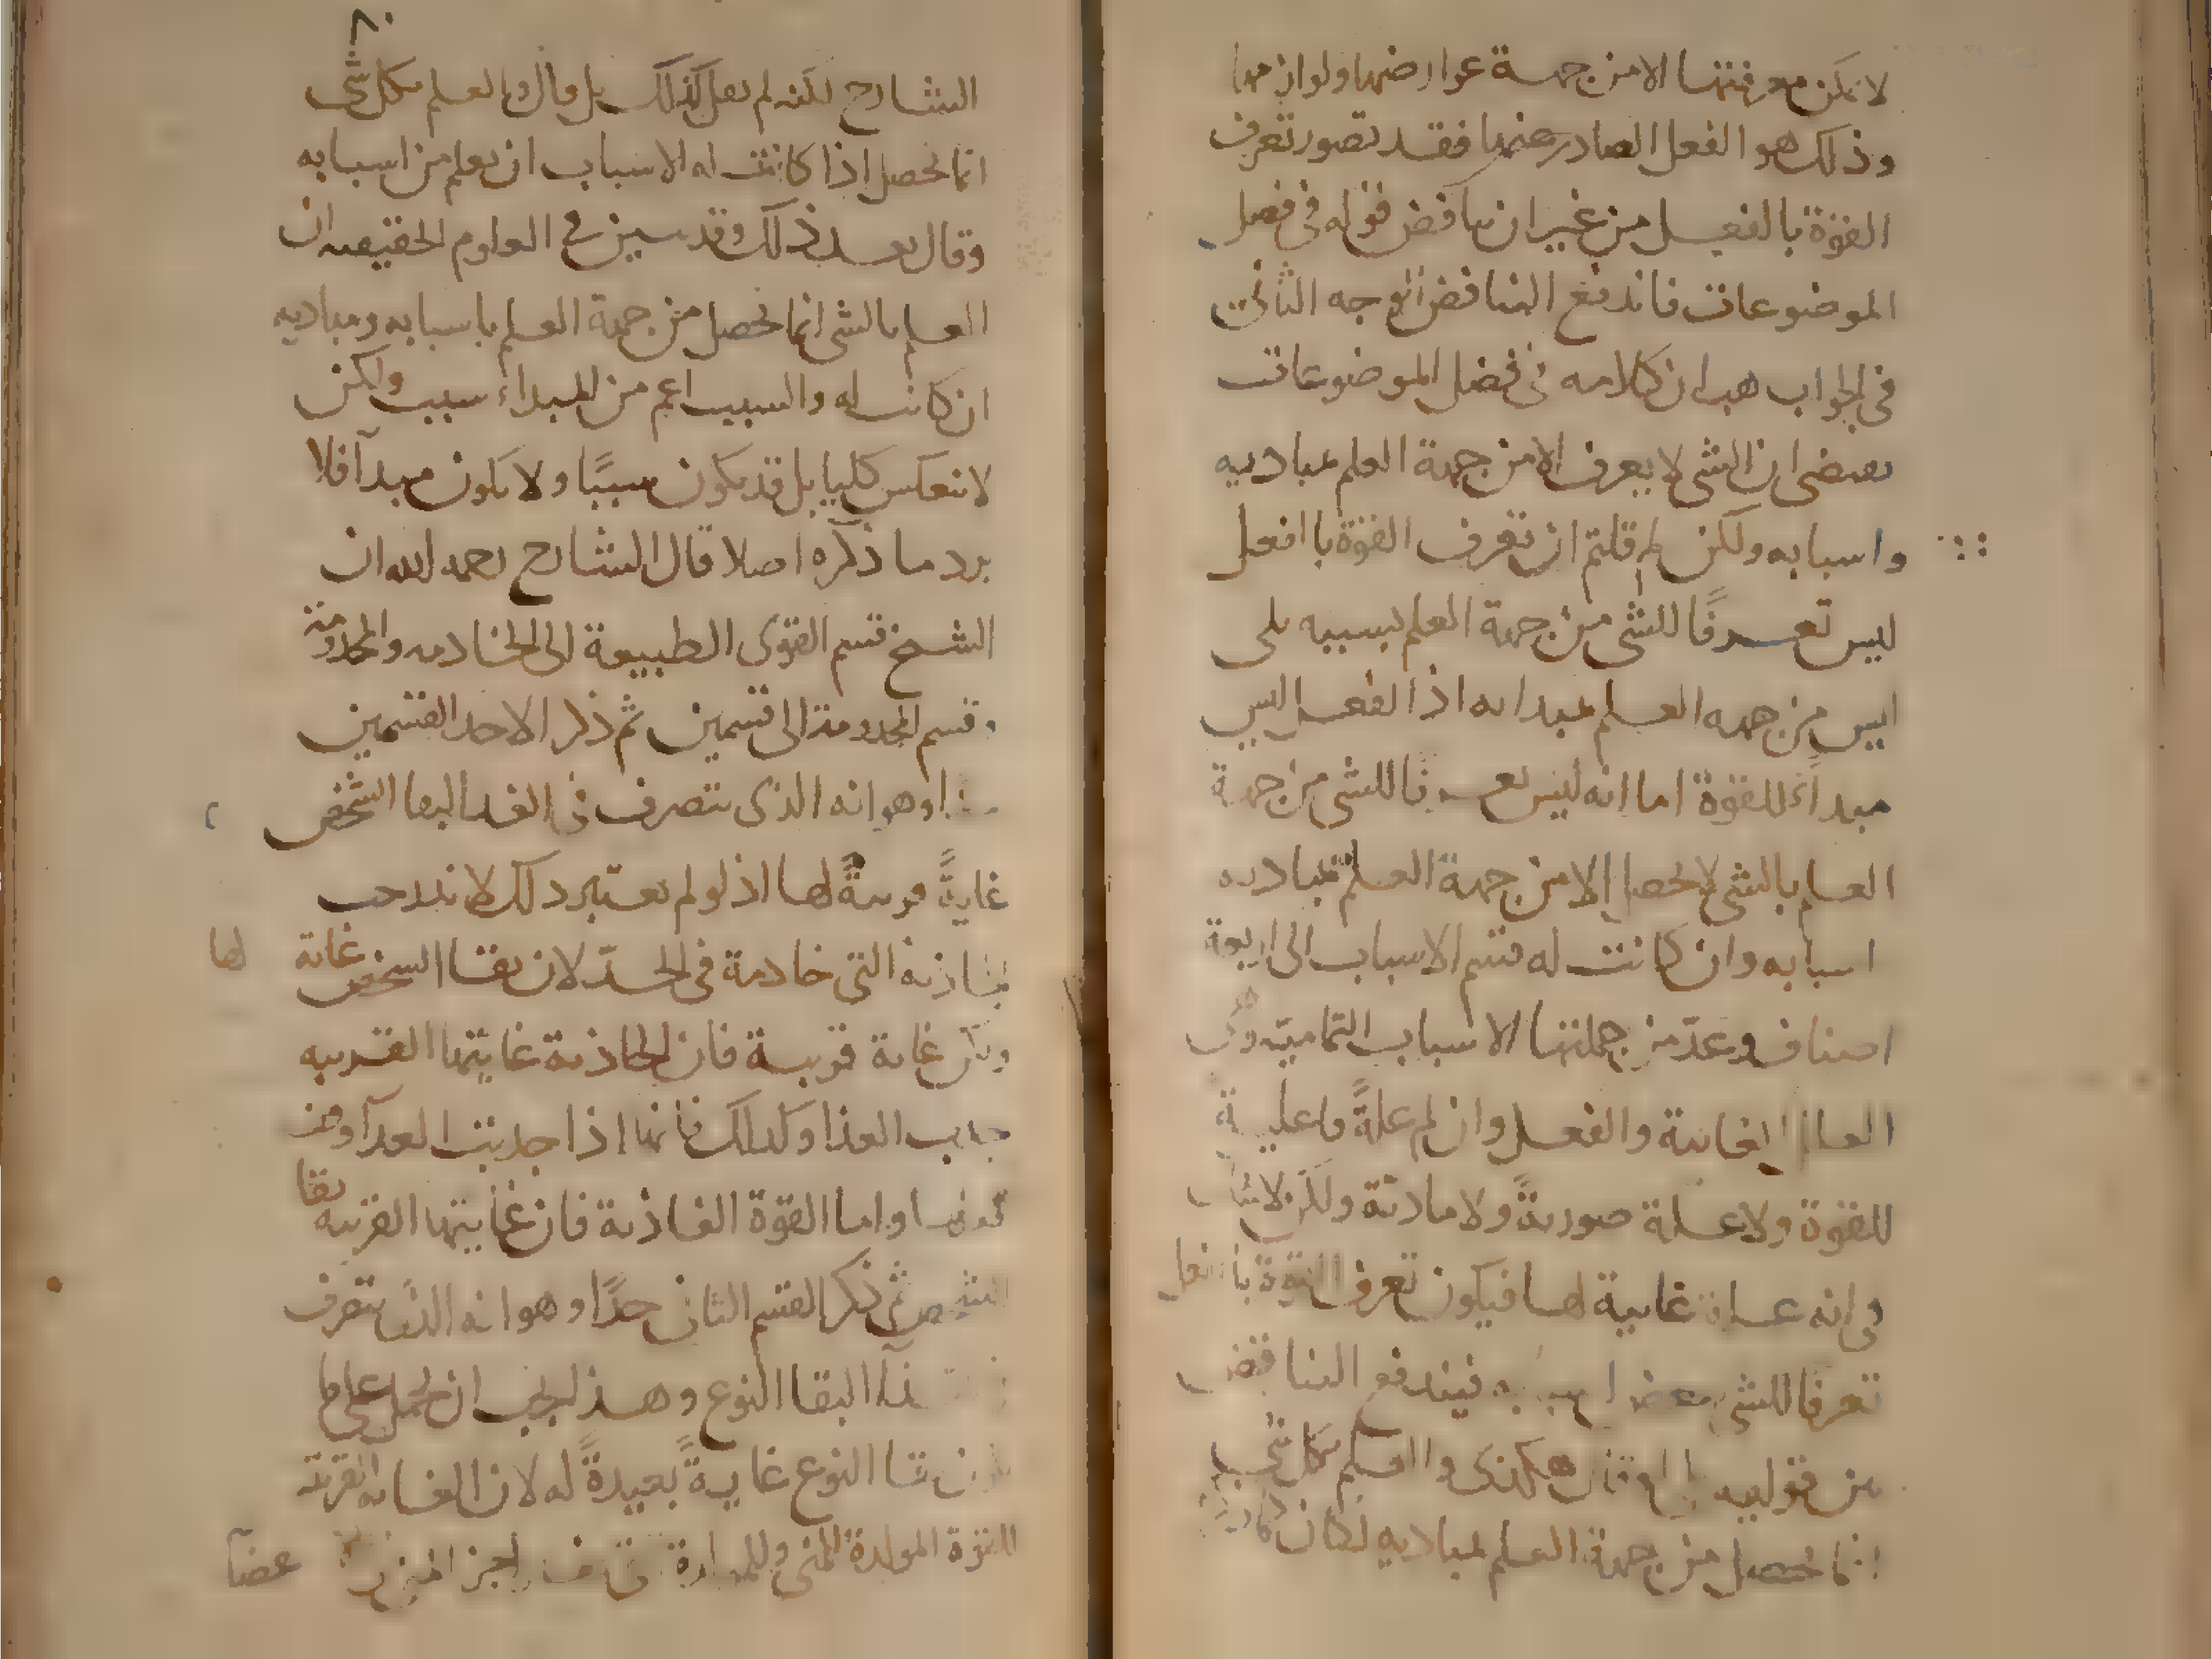 لا يمكن معرفتها الا من جهة عوارضها ولوازمها
وذلك هو الفعل الصادر عنها فقد تصور تعرف
القوة بالفعل من غير ان يناقض قوله في فصل
الموضوعات فاندفع التناقض الوجه الثاني
في الجواب هب ان كلامه في فصل الموضوعات
يقتضى ان الشى لا يعرف الا من جهة العلم بمباديه
واسبابه ولكن لم قلتم ان تعرف القوة باافعل
ليس تعرفًا للشى من جهة العلم بسببه بلى
ليس من جهه العلم بمبدائه اذ الفعل ليس
مبدأً للقوة اما انه ليس تعرفا للشى من جهة
العلم بالشى لا يحصل الا من جهة العلم بمباديه
اسبابه وان كانت له قسم الاسباب الى اربعة
اصناف وعدّ من جملتها الاسباب التمامية وهى
الغائية والفعل وان لم علةً فاعلية
للقوة ولا علة صوريةً ولا مادية ولكن لا شك
فى انه علة غايية لها فيكون تعرف القوة بالفعل
تعرفا للشى ببعض اسبابه فيندفع التناقض
من قوليه هكذى والعلم بكل شى
انما يحصل من جهة العلم بمباديه لكان
٨٠
الشارح لكنه لم يقل كذلك بل قال والعلم بكل شى
انما يحصل اذا كانت له الاسباب ان يعلم من اسبابه
وقال بعد ذلك وقد سبين في العلوم الحقيقيه ان
العلم بالشى انما يحصل من جهة العلم باسبابه ومباديه
ان كانت له والسبب اعم من المبداء سبب ولكن
لا ينعكس كليا بل قد يكون سببًا ولا يكون مبدآ فلا
يرد ما ذكره اصلا قال الشارح رحمه الله ان
الشيخ قسم القوى الطبيعة الى الخادمه والمخدومة
وقسم المخدومة الى قسمين ثم ذكر الاحد القسمين
حدا وهو انه الذى يتصرف فى الغدا لبقا الشخص
غايةً قريبةً لها اذ لو لم يعتبر ذلك لاندرجت
الجاذبة التى خادمة فى الحدّ لان بقا الشخص غاية لها
غاية قريبة فان الجاذبة غايتها القريبه
جذب الغذا وكذلك فانها اذا جذبت الغدآ
واما القوة الغاذية فان غايتها القريبه بقا
الشخص ثم ذكر القسم الثانى حدًا وهو انه الذى يتصرف
البقا النوع وهذ يجب ان يحمل على ما
النوع غايةً بعيدةً له لان الغايه القريبة
للقوة المولدة المنى عضآ